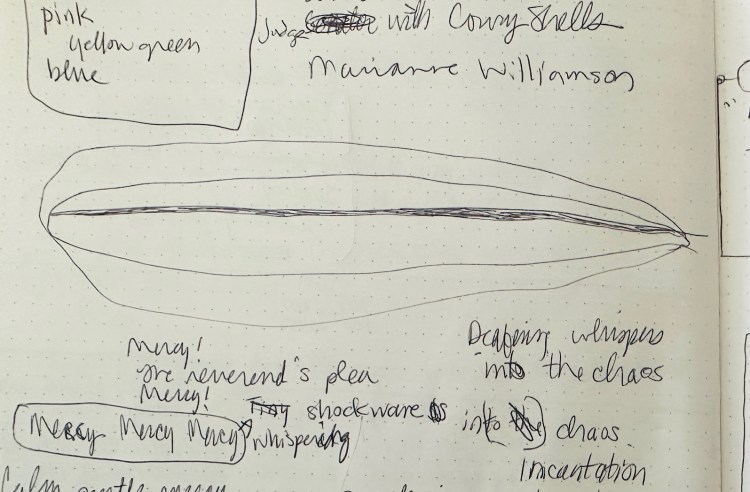 pink
yellow green
blue
Judge with Cowry Shells
Marianne Williamson
Mercy!
the reverend's plea
Mercy!
Mercy Mercy Mercy
Tiny shockwave is
whispering
Deafening whispers
into the chaos
into the chaos
Incantation
Calm gentle